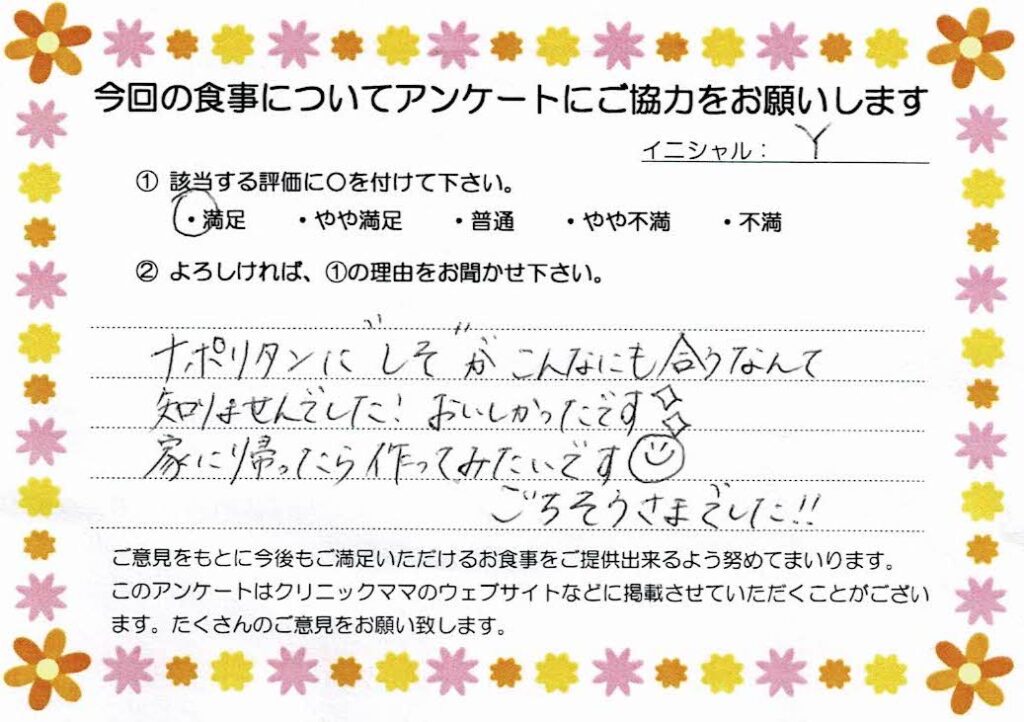 今回の食事についてアンケートにご協力をお願いします
イニシャル： Y
① 該当する評価に○を付けて下さい。
・満足 ・やや満足 ・普通 ・やや不満 ・不満
② よろしければ、①の理由をお聞かせ下さい。
ナポリタンに"しそ"が こんなにも合うなんて
知りませんでした! おいしかったです
家に帰ったら作ってみたいです
ごちそうさまでした!!
ご意見をもとに今後もご満足いただけるお食事をご提供出来るよう努めてまいります。
このアンケートはクリニックママのウェブサイトなどに掲載させていただくことがござい
ます。たくさんのご意見をお願い致します。